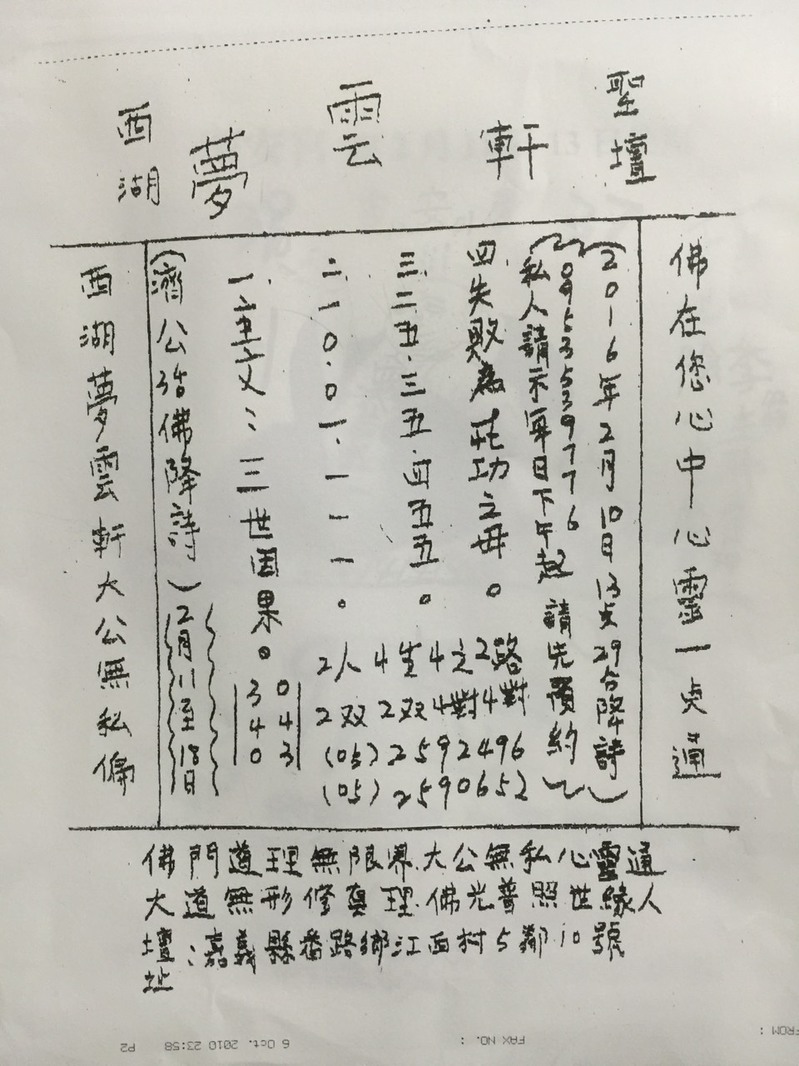 西湖夢雲軒聖壇
佛在您心中心靈一点通
(2016年2月10日13点29分降詩)
(0953539776
私人請示每日下午起 請先預約)
四.失敗為成功之母。
三.二五.三五.四五五。
二.一0.0一.一一一。
一.玄文:三世因果。
(濟公活佛降詩)
2月11至18日
西湖夢雲軒大公無私偏
2人4生4之2路
2双2双4對4對
(05)2592496
(05)2590652
0 4 3
3 4 0
佛門道理無限界.大公無私心靈通
大道無形修真理.佛光普照世緣人
壇址:嘉義縣番路鄉江西村5鄰10號
6 Oct. 2010 23:58 P2
FAX NO. :
FROM :